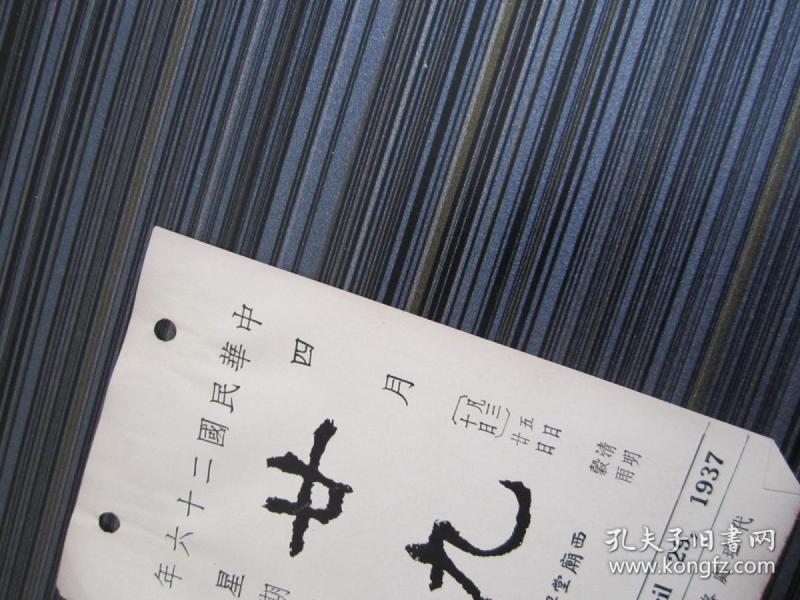 中華民國二十六年
四月
廿九
星期
〔凡三十日〕
五日 清明
廿日 穀雨
西廟堂
1937
29,
代
孔夫子旧書网
www.kongfz.com